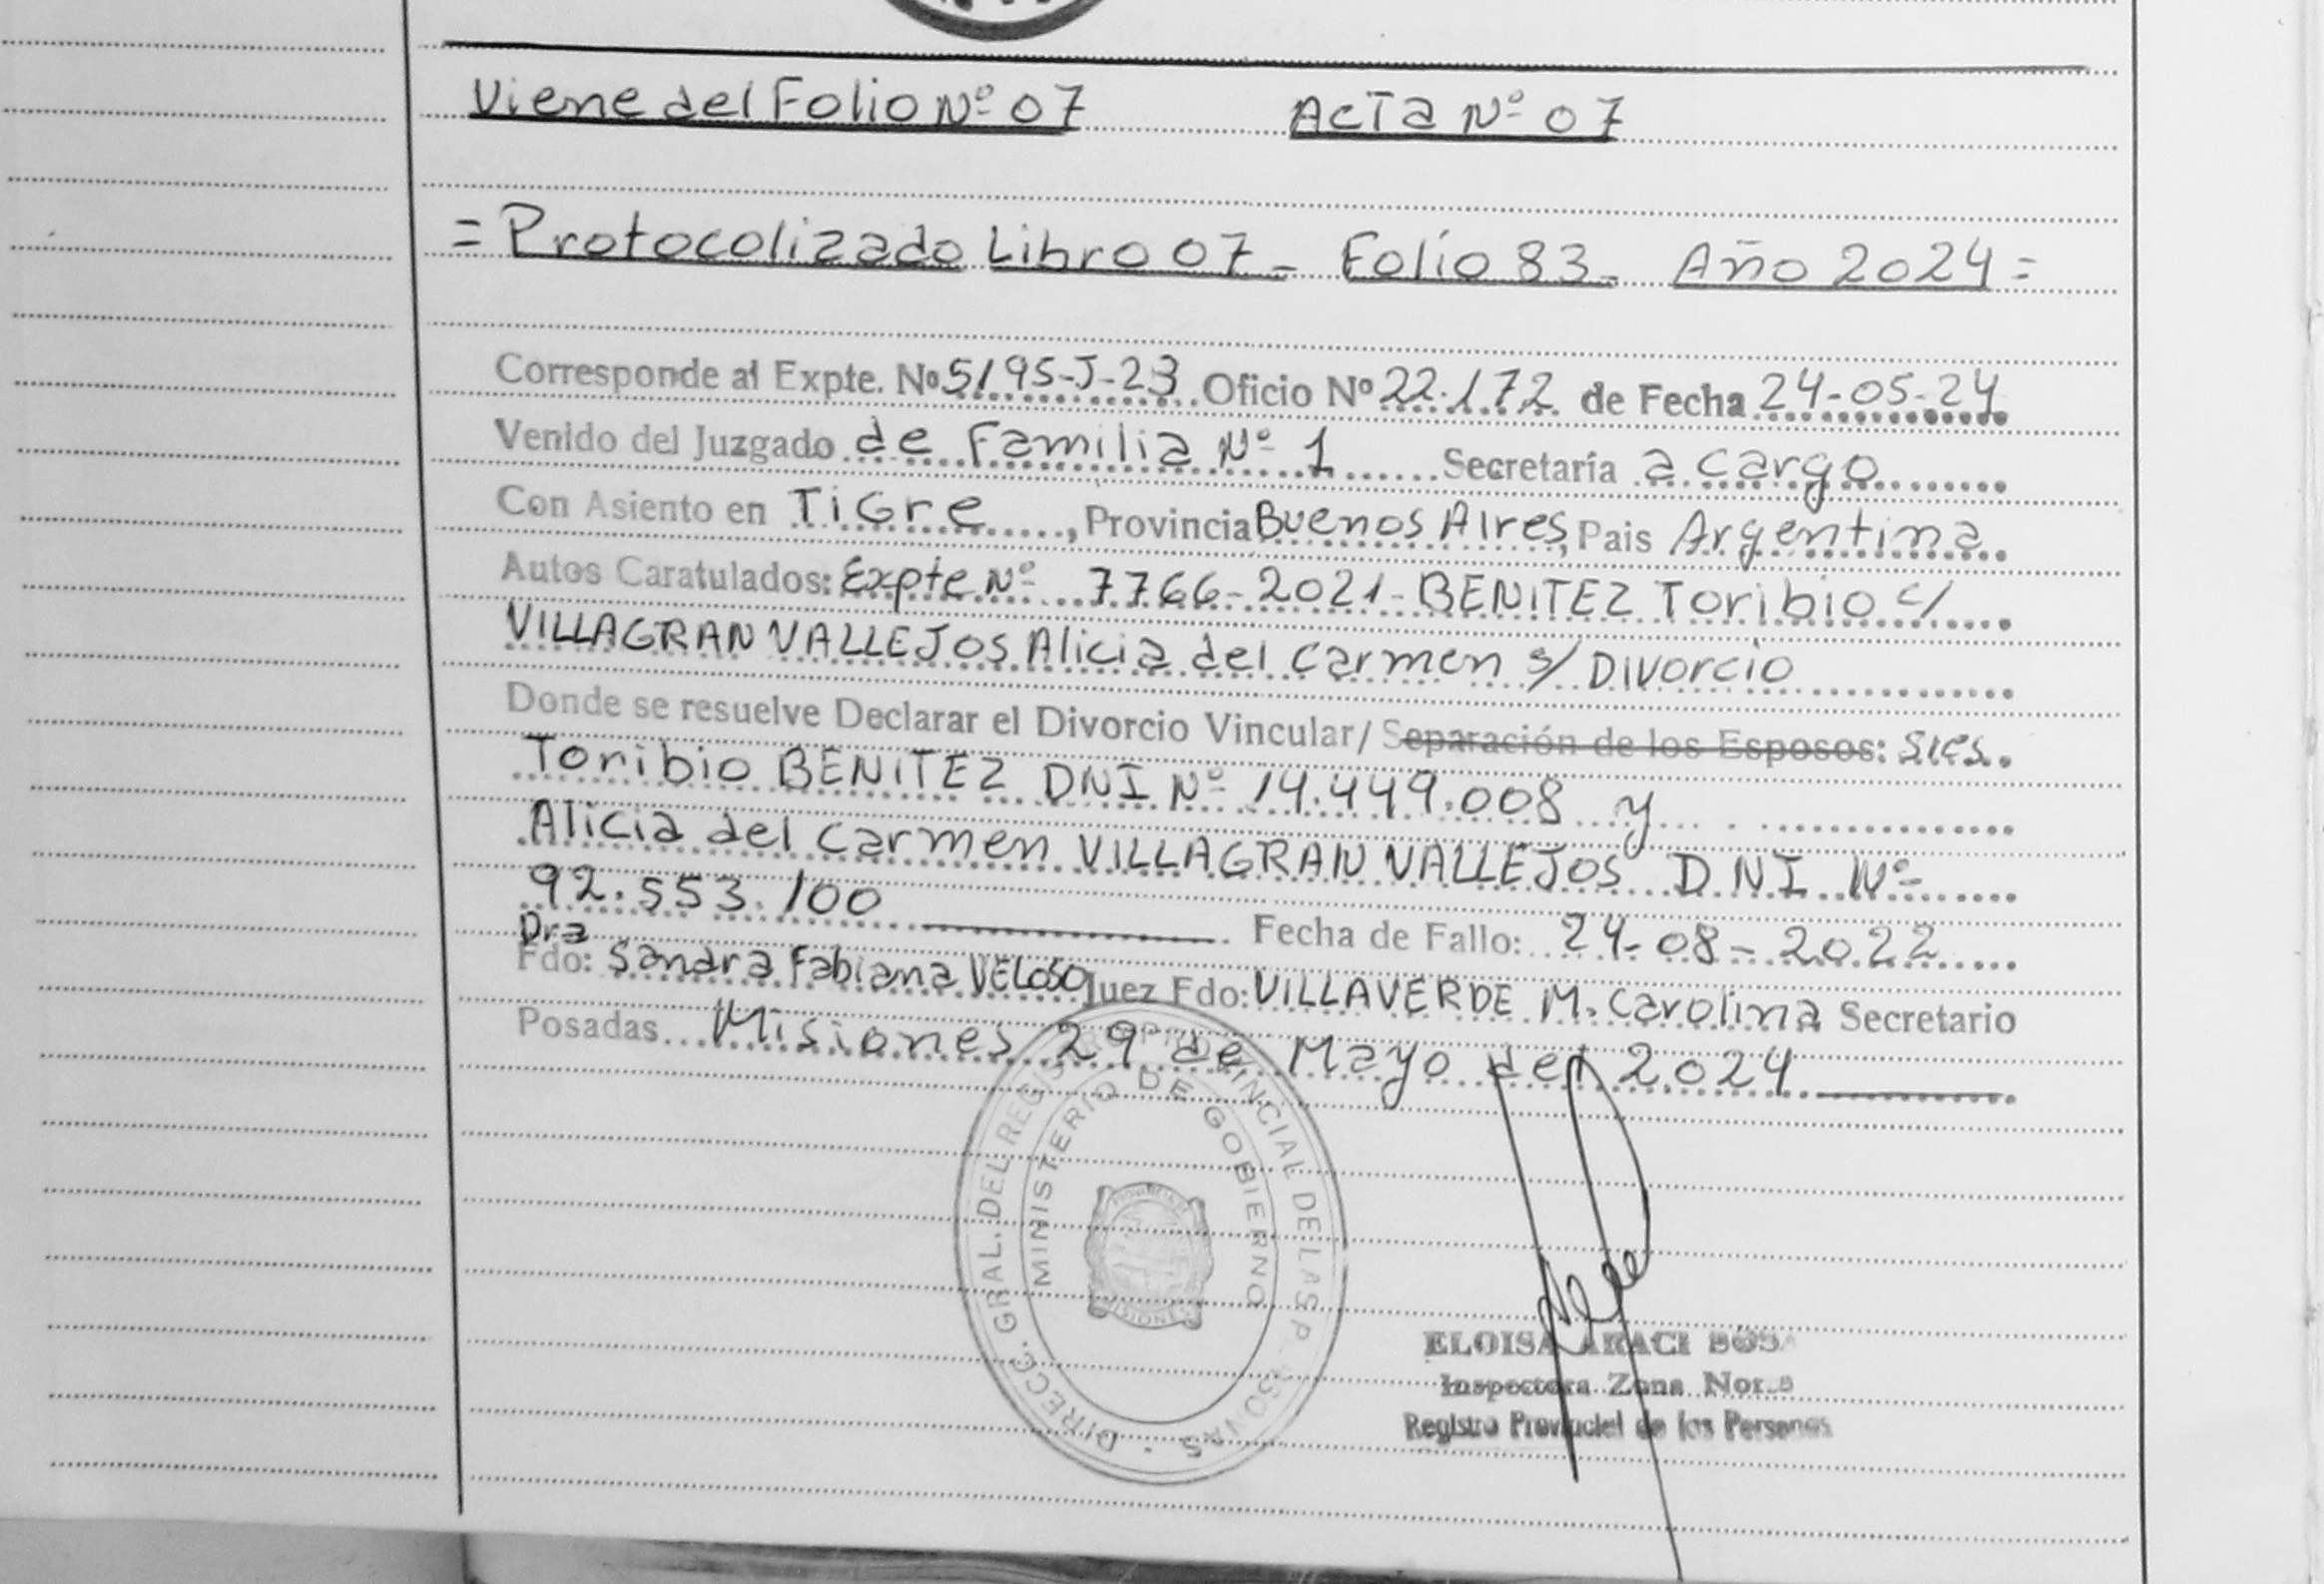 Viene del Folio Nº 07 Acta Nº 07
= Protocolizado Libro 07 - Folio 83 - Año 2024 =
Corresponde al Expte. Nº 5195-J-23 Oficio Nº 22.172 de Fecha 24-05-24
Venido del Juzgado de Familia Nº 1 Secretaría a cargo
Con Asiento en Tigre, Provincia Buenos Aires, Pais Argentina
Autos Caratulados: Expte Nº 7766-2021- BENITEZ Toribio c/
VILLAGRAN VALLEJOS Alicia del Carmen s/ Divorcio
Donde se resuelve Declarar el Divorcio Vincular / Separación de los Esposos:
Toribio BENITEZ DNI Nº 14.449.008 y
Alicia del Carmen VILLAGRAN VALLEJOS DNI Nº
92.553.100 Fecha de Fallo: 24-08-2022
Dra
Fdo: Sandra Fabiana VELOSO Juez Fdo: VILLAVERDE M. Carolina Secretario
Posadas Misiones 29 de Mayo del 2024
DIRECC. GRAL. DEL REGISTRO PROVINCIAL DE LAS PERSONAS
MINISTERIO DE GOBIERNO
PROVINCIA
MISIONES
ELOISA ARACI
Inspectora Zona
Registro Provincial de las Personas